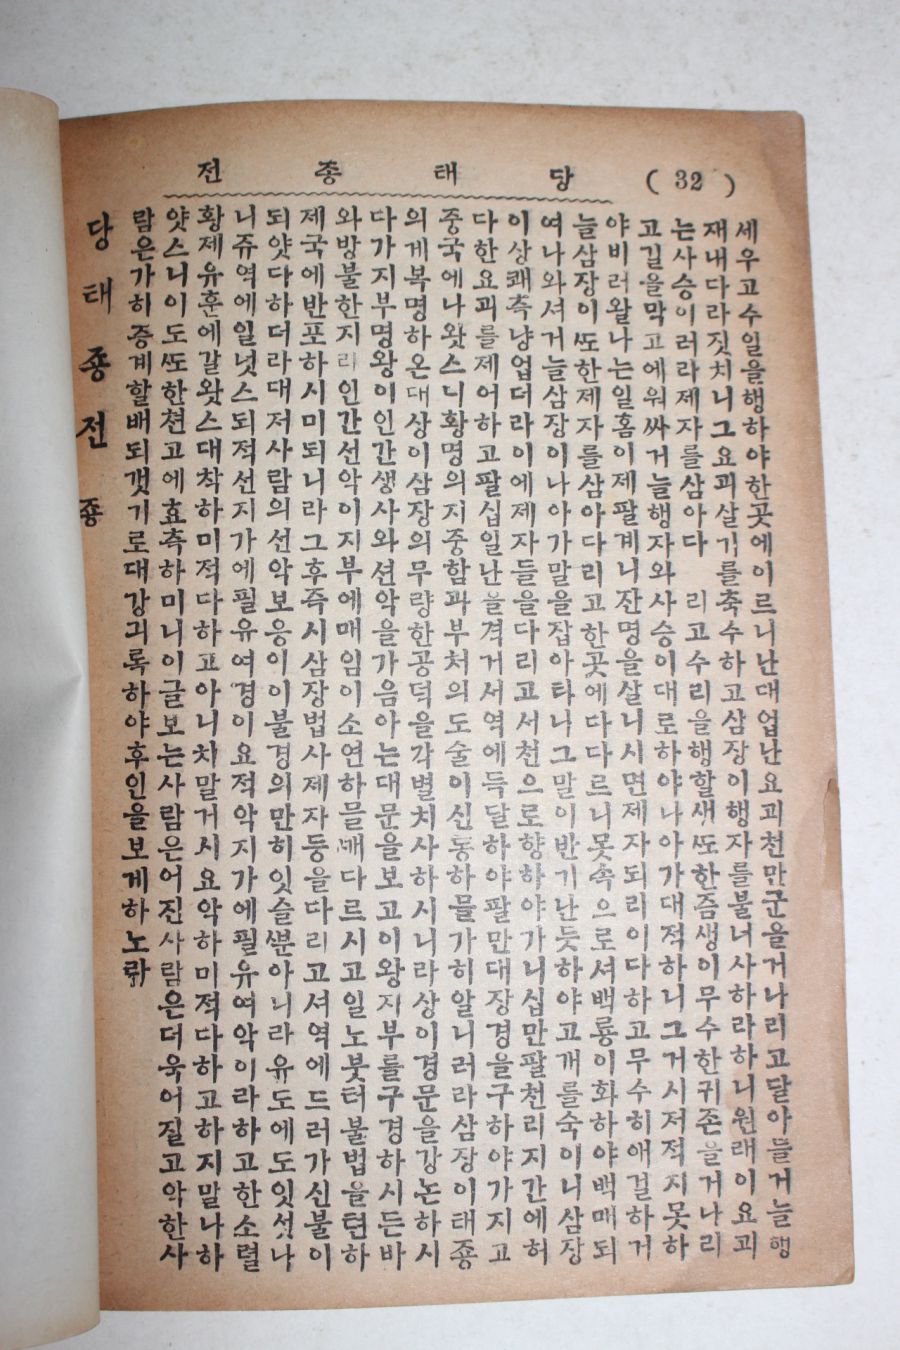 ( 32 )
당태종전
세우고수일을행하야한곳에이르니난대업난요괴천만군을거나리고달아들거늘행
재내다라짓치니그요괴살기를축수하고삼장이행자를불너사하라하니원래이요괴
는사승이러라제자를삼아다 리고수리을행할새ᄯᅩ한즘생이무수한귀존을거나리
고길을막고에워싸거늘행자와사승이대로하야나아가대적하니그거시저적지못하
야비러왈나는일홈이제팔계니잔명을살니시면제자되리이다하고무수히애걸하거
늘삼장이ᄯᅩ한제자를삼아다리고한곳에다다르니못속으로셔백룡이화하야백매되
여나와셔거늘삼장이나아가말을잡아타니그말이반기난듯하야고개를숙이니삼장
이상쾌측냥업더라이에제자들을다리고서천으로향하야가니십만팔천리지간에허
다한요괴를제어하고팔십일난을격거서역에득달하야팔만대장경을구하야가지고
중국에나왓스니황명의지중함과부처의도술이신동하믈가히알니러라삼장이태죵
의게복명하온대상이삼장의무량한공덕을각별치사하시니라상이경문을강논하시
다가지부명왕이인간생사와션악을가음아는대문을보고이왕지부를구경하시든바
와방불한지라인간선악이지부에매임이소연하믈ᄭᅢ다르시고일노붓터불법을텬하
제국에반포하시미되니라그후즉시삼장법사제자등을다리고셔역에드러가신불이
되얏다하더라대저사람의선악보응이이불경의만히잇슬ᄲᅮᆫ아니라유도에도잇섯나
니쥬역에일넛스되적선지가에필유여경이요적악지가에필유여악이라하고한소렬
황제유훈에갈왓스대착하미적다하고아니치말거시요악하미적다하고하지말나하
얏스니이도ᄯᅩ한쳔고에효측하미니이글보는사람은어진사람은더욱어질고악한사
람은가히증계할배되겟기로대강긔록하야후인을보게하노라
당태죵전 죵